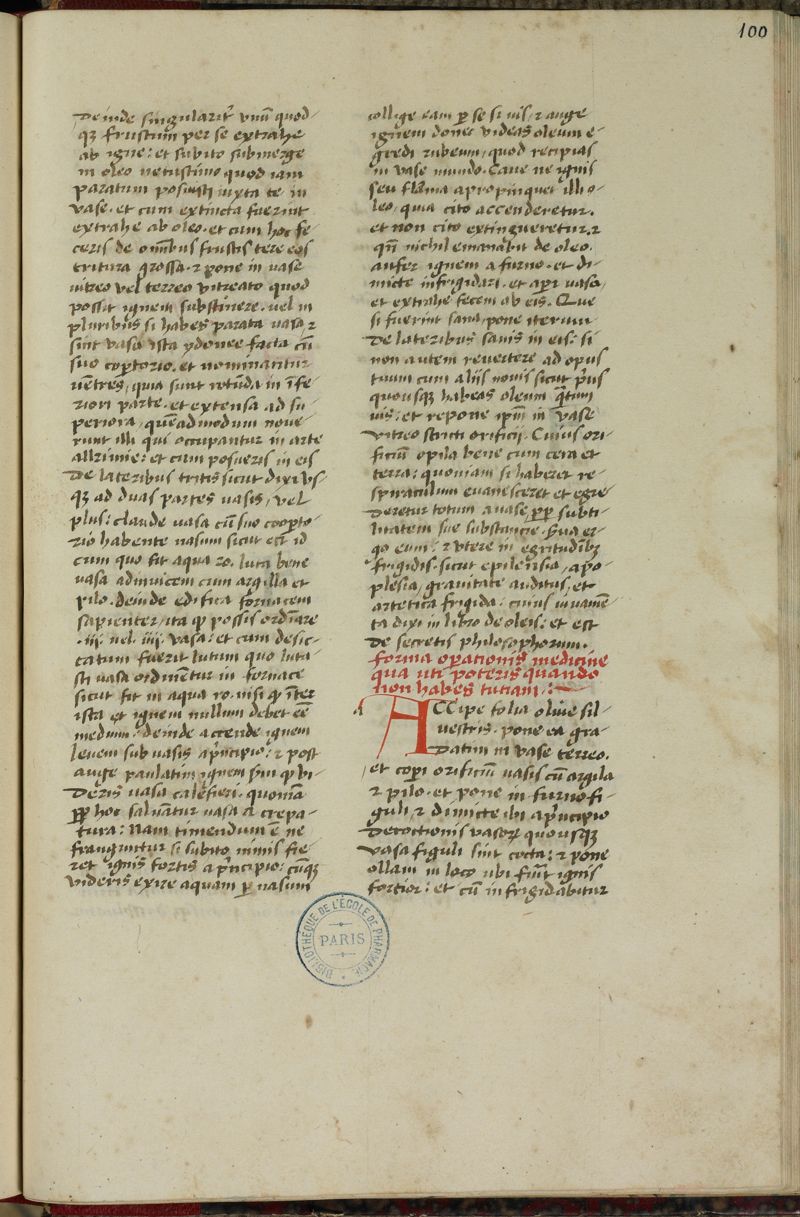 100
deinde singularit᷑ vnū quod-
qꝫ frustum per se extrahe
ab igne: et subito submerge
in oleo uetustimo quod iam
paratum posuisti iuxta te in
vase. et cum extincta fuerint
extrahe ab oleo. et cum hoc fe-
ceris de om̄ibus frustis tere eos
tritura grossa. ⁊ pone in uase
uitreo vel terreo vitreato quod
possit ignem substinere. uel in
pluribus si habes parata uasa ⁊
sint vasa ista ydonee facta cū
suo coꝑtorio. et nominantur
uētres, quia sunt rotūda in īfe-
riori parte. et extensa ad su-
periora, quēadmodum noue-
runt illi qui occupantur in arte
allzimie: et cum posueris in eis
de lateribus tritis sicut dixi vs-
qꝫ ad duas partes uasis, vel
plus: claude uasa cū suo cooꝑto-
rio habente nasum sicut est id
cum quo fit aqua ro. luta bene
uasa adinuicem cum argilla et
pilo. deinde edifica fornacem
sapienter, ita ꝙ possis ordīare
.iij. uel .iiij. vasa: et cum desic-
catum fuerit lutum quo luta-
sti uasa ordinētur in fornace
sicut fit in aqua ro. nisi ꝙ īter
ista et ignem nullum debet eē
medium. deinde accende ignem
leuem sub uasis a p̄ncipio: ⁊ post
auge paulatim ignem sin ꝙ vi-
deris uasa calefieri. quoniā
ꝓꝑ hoc saluātur uasa a crepa-
tura: Nam timendum ē ne
frangūtur si subito nimis fie-
ret ignis fortis a p̄ncipio: cūqꝫ
videris exire aquam ꝑ nasum
collige eam ꝑ se si uis, ⁊ auge
ignem donec videas oleum e-
gredi rubeum, quod recipias
in vase mundo. Caue ne ignis
seu flāma apropinquet illi o-
leo, quia cito accenderetur.
et non cito extingueretur. ⁊
qn̄ nichil emanabit de oleo.
aufer ignem a furno. et di-
micte infrigidari. et aꝑi uasa,
et extrahe fecem ab eis. Que
si fuerint sana, pone iterum
de lateribus sanis in eis: si
non autem reuertere ad opus
tuum cum alijs nouis sicut p̄us
quousqꝫ habeas oleum q̄tum
uis: et repone ip̄m in vase
vitreo stricti orificij. Cuius ori-
ficiū opila bene cum cera et
terra: quoniam si haberet re-
spiraculum euanesceret et egre-
deretur totum a uase, ꝓꝑ subti-
litatem sue substancie. Serua er-
go eum: ⁊ vtere in egritudībꝫ
frigidis. sicut epilensia, apo-
plesia, grauitate auditus, et
artetica frigida: cuius iuuamē-
ta dixi in libro de oleis: et est
de secretis philosophorum.
forma oꝑationis medicine
qua uti poteris quando
non habes tutiam:
a
ACcipe folia oliue sil-
uestris. pone ea gra-
datim in vase terreo.
et coꝑi orificiū uasis cū argila
⁊ pilo. et pone in furno fi-
guli, ⁊ dimicte ibi a p̄ncipio
decoctionis vasoꝝ quousqꝫ
vasa figuli sint cocta: ⁊ pone
ollam in loco ubi fiūt ignis
fortior: et cū infrigidabitur
BIBLIOTHÈQUE DE L'ÉCOLE DE PHARMACIE
PARIS